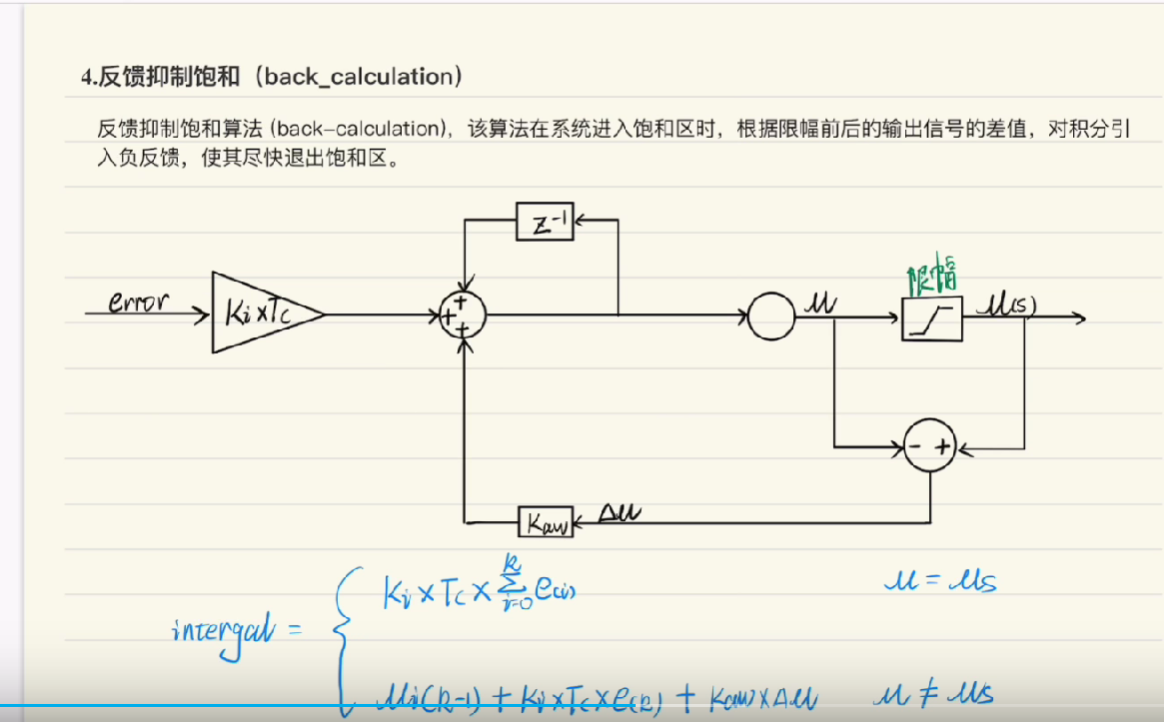 4.反馈抑制饱和（back_calculation）
反馈抑制饱和算法 (back-calculation)，该算法在系统进入饱和区时，根据限幅前后的输出信号的差值，对积分引
入负反馈，使其尽快退出饱和区。
z⁻¹
限幅
error
Ki×Tc
+
+
+
u
u(s)
- +
Kaw
Δu
Ki×Tc×∑e(i)
k
i=0
u=us
intergal =
ui(k-1)+Ki×Tc×e(k)+Kaw×Δu
u≠us